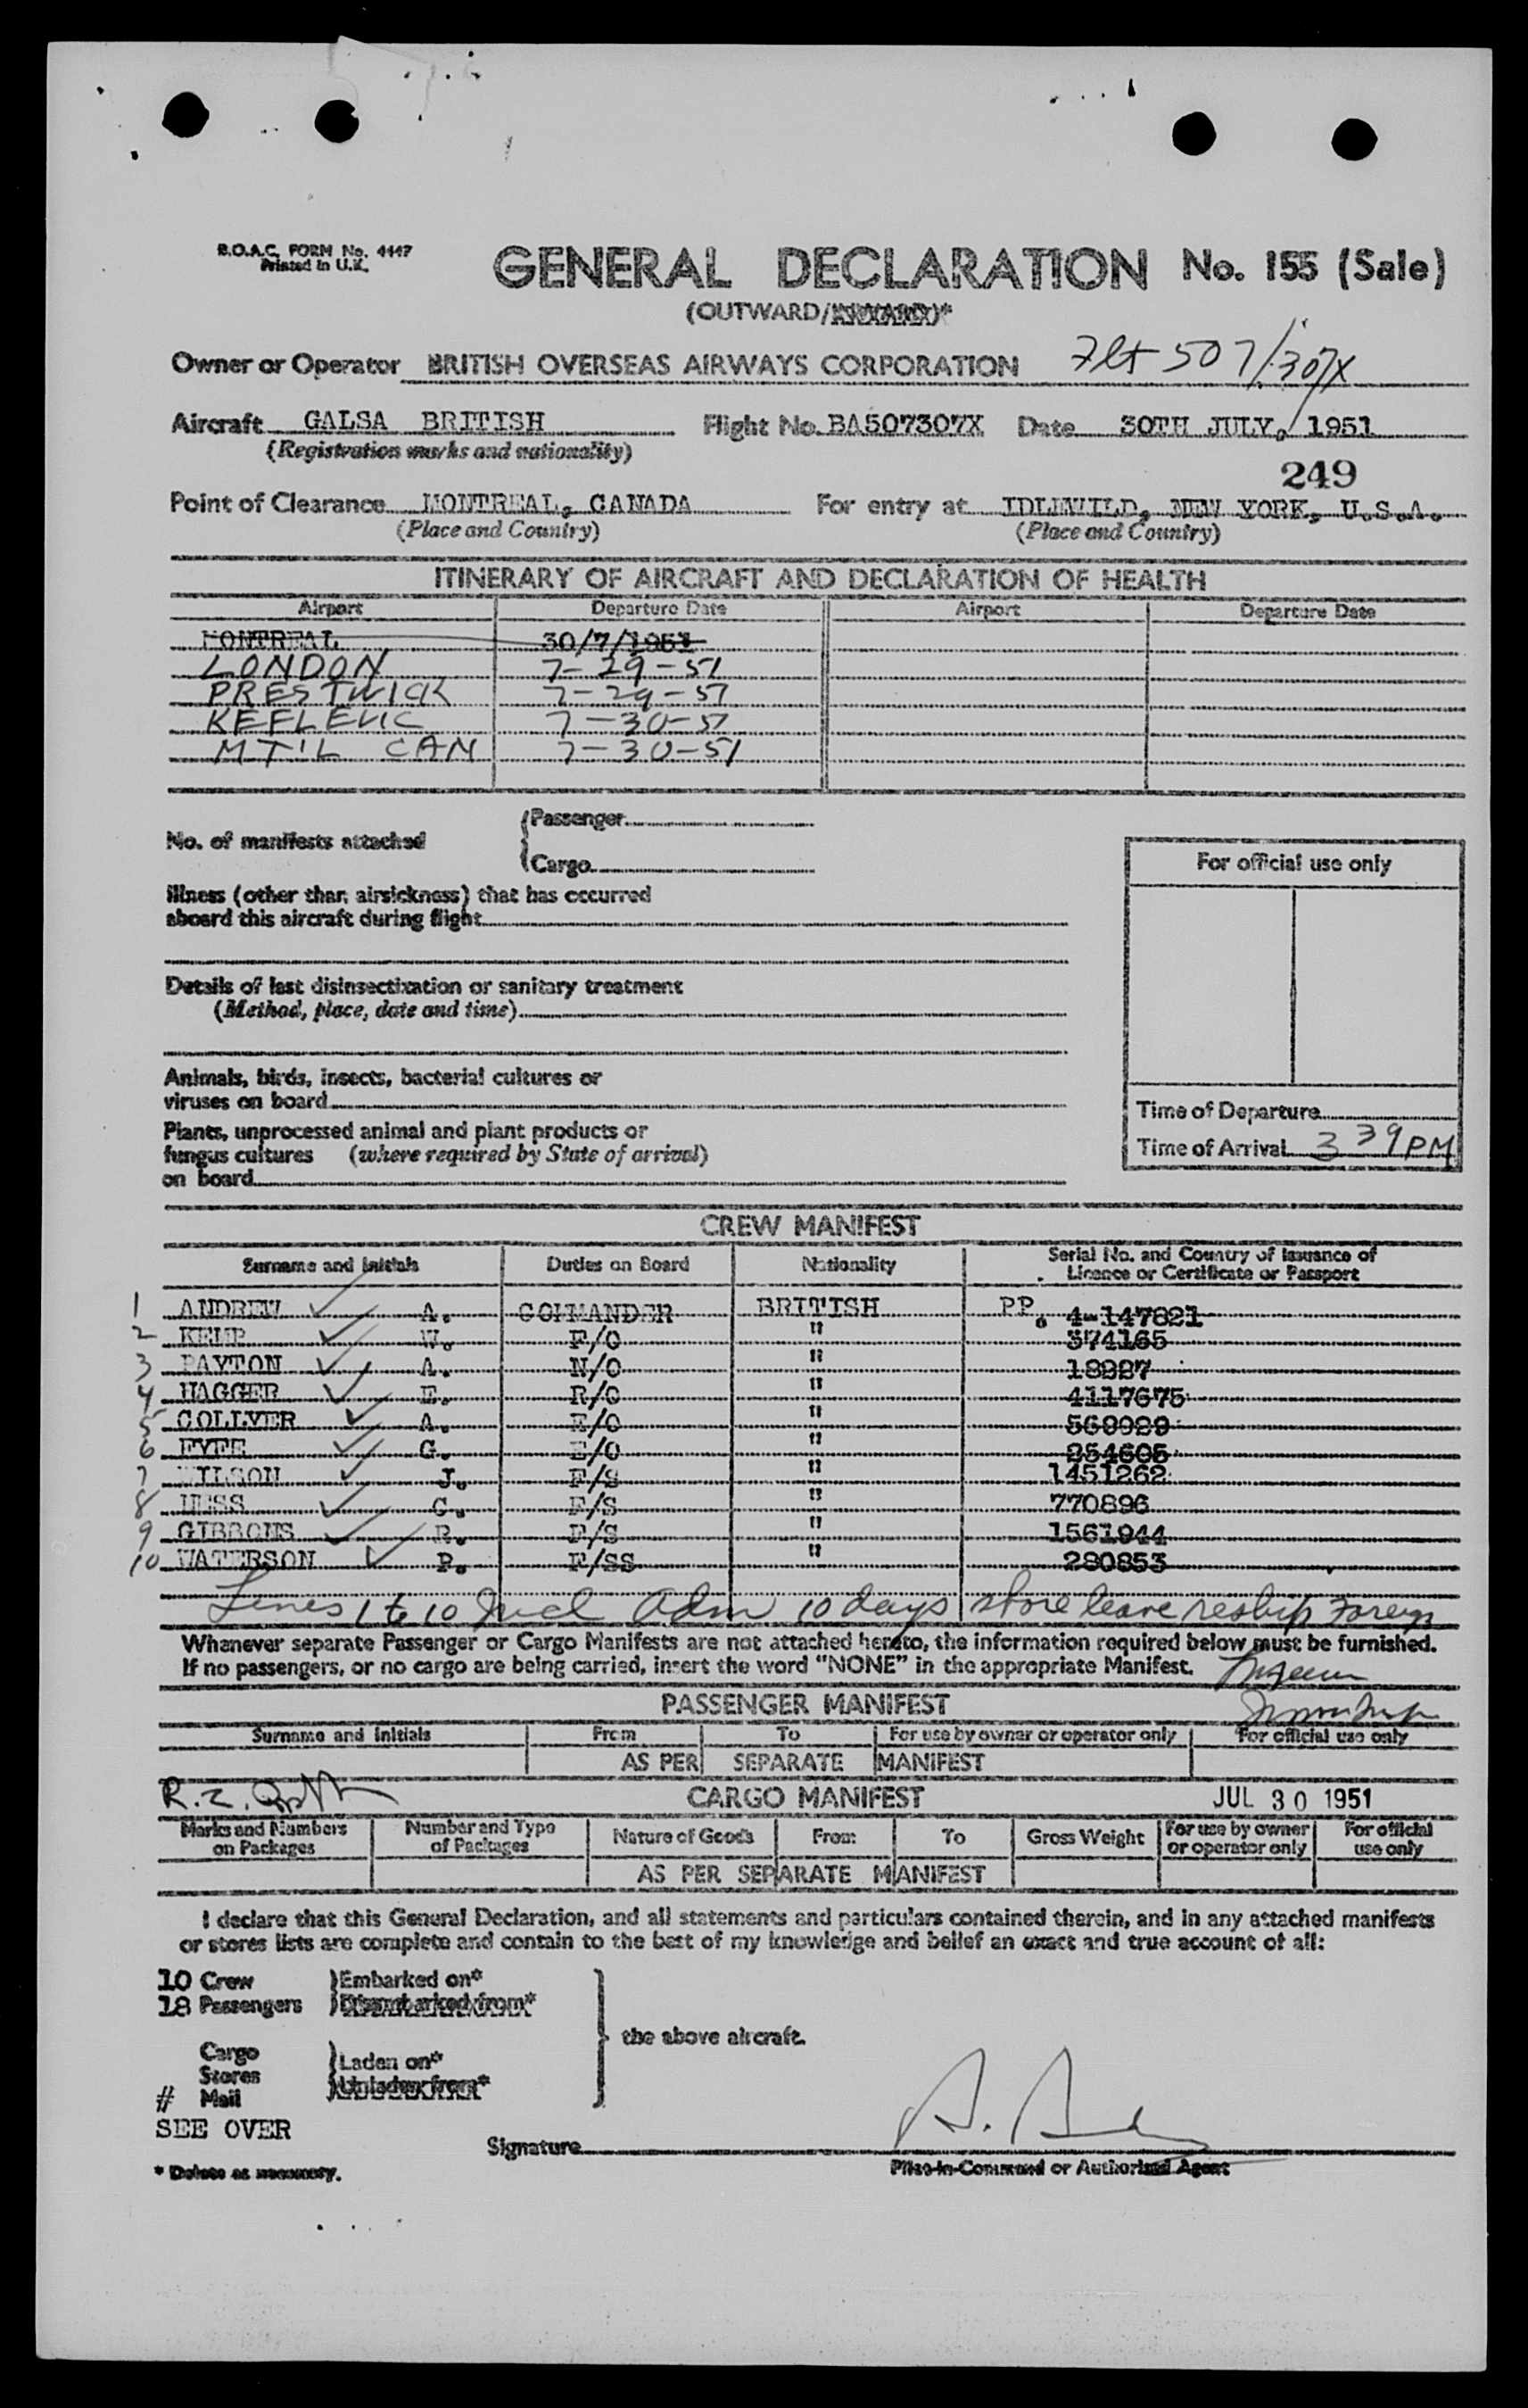 B.O.A.C. FORM No. 4447
Printed in U.K.
GENERAL DECLARATION No. 155 (Sale)
(OUTWARD/INWARD)*
Owner or Operator BRITISH OVERSEAS AIRWAYS CORPORATION Flt 507/307X
Aircraft GALSA BRITISH Flight No. BA507307X Date 30TH JULY, 1951
(Registration marks and nationality)
249
Point of Clearance MONTREAL, CANADA For entry at IDLEWILD, NEW YORK, U.S.A.
(Place and Country) (Place and Country)
ITINERARY OF AIRCRAFT AND DECLARATION OF HEALTH
Airport Departure Date Airport Departure Date
MONTREAL 30/7/1951
LONDON 7-29-51
PRESTWICK 7-29-51
KEFLEVIC 7-30-51
MT'L CAN 7-30-51
No. of manifests attached
Passenger
Cargo
For official use only
Illness (other than airsickness) that has occurred
aboard this aircraft during flight
Details of last disinsectization or sanitary treatment
(Method, place, date and time)
Animals, birds, insects, bacterial cultures or
viruses on board
Time of Departure
Plants, unprocessed animal and plant products or
fungus cultures (where required by State of arrival)
on board
Time of Arrival 3 39 PM
CREW MANIFEST
Surname and Initials Duties on Board Nationality Serial No. and Country of Issuance of
Licence or Certificate or Passport
1 ANDREW A. COMMANDER BRITISH PP. 4-147821
2 KEMP W. F/O " 374165
3 PAYTON A. N/O " 18987
4 HAGGER E. R/O " 4117675
5 COLLYER A. E/O " 569929
6 FYFE G. E/O " 254605
7 WILSON J. F/S " 1451262
8 HESS C. F/S " 770896
9 GIBBONS R. F/S " 1561944
10 WATERSON P. F/SS " 280853
Lines 1 to 10 Incl Adm 10 days shore leave reship Foreign
Whenever separate Passenger or Cargo Manifests are not attached hereto, the information required below must be furnished.
If no passengers, or no cargo are being carried, insert the word "NONE" in the appropriate Manifest.
PASSENGER MANIFEST
Surname and Initials From To For use by owner or operator only For official use only
AS PER SEPARATE MANIFEST
CARGO MANIFEST
JUL 30 1951
Marks and Numbers on Packages Number and Type of Packages Nature of Goods From To Gross Weight For use by owner or operator only For official use only
AS PER SEPARATE MANIFEST
I declare that this General Declaration, and all statements and particulars contained therein, and in any attached manifests
or stores lists are complete and contain to the best of my knowledge and belief an exact and true account of all:
10 Crew Embarked on*
18 Passengers Disembarked from*
the above aircraft.
Cargo
Stores
# Mail
Laden on*
Unladen from*
SEE OVER
Signature
Pilot-in-Command or Authorized Agent
* Delete as necessary.